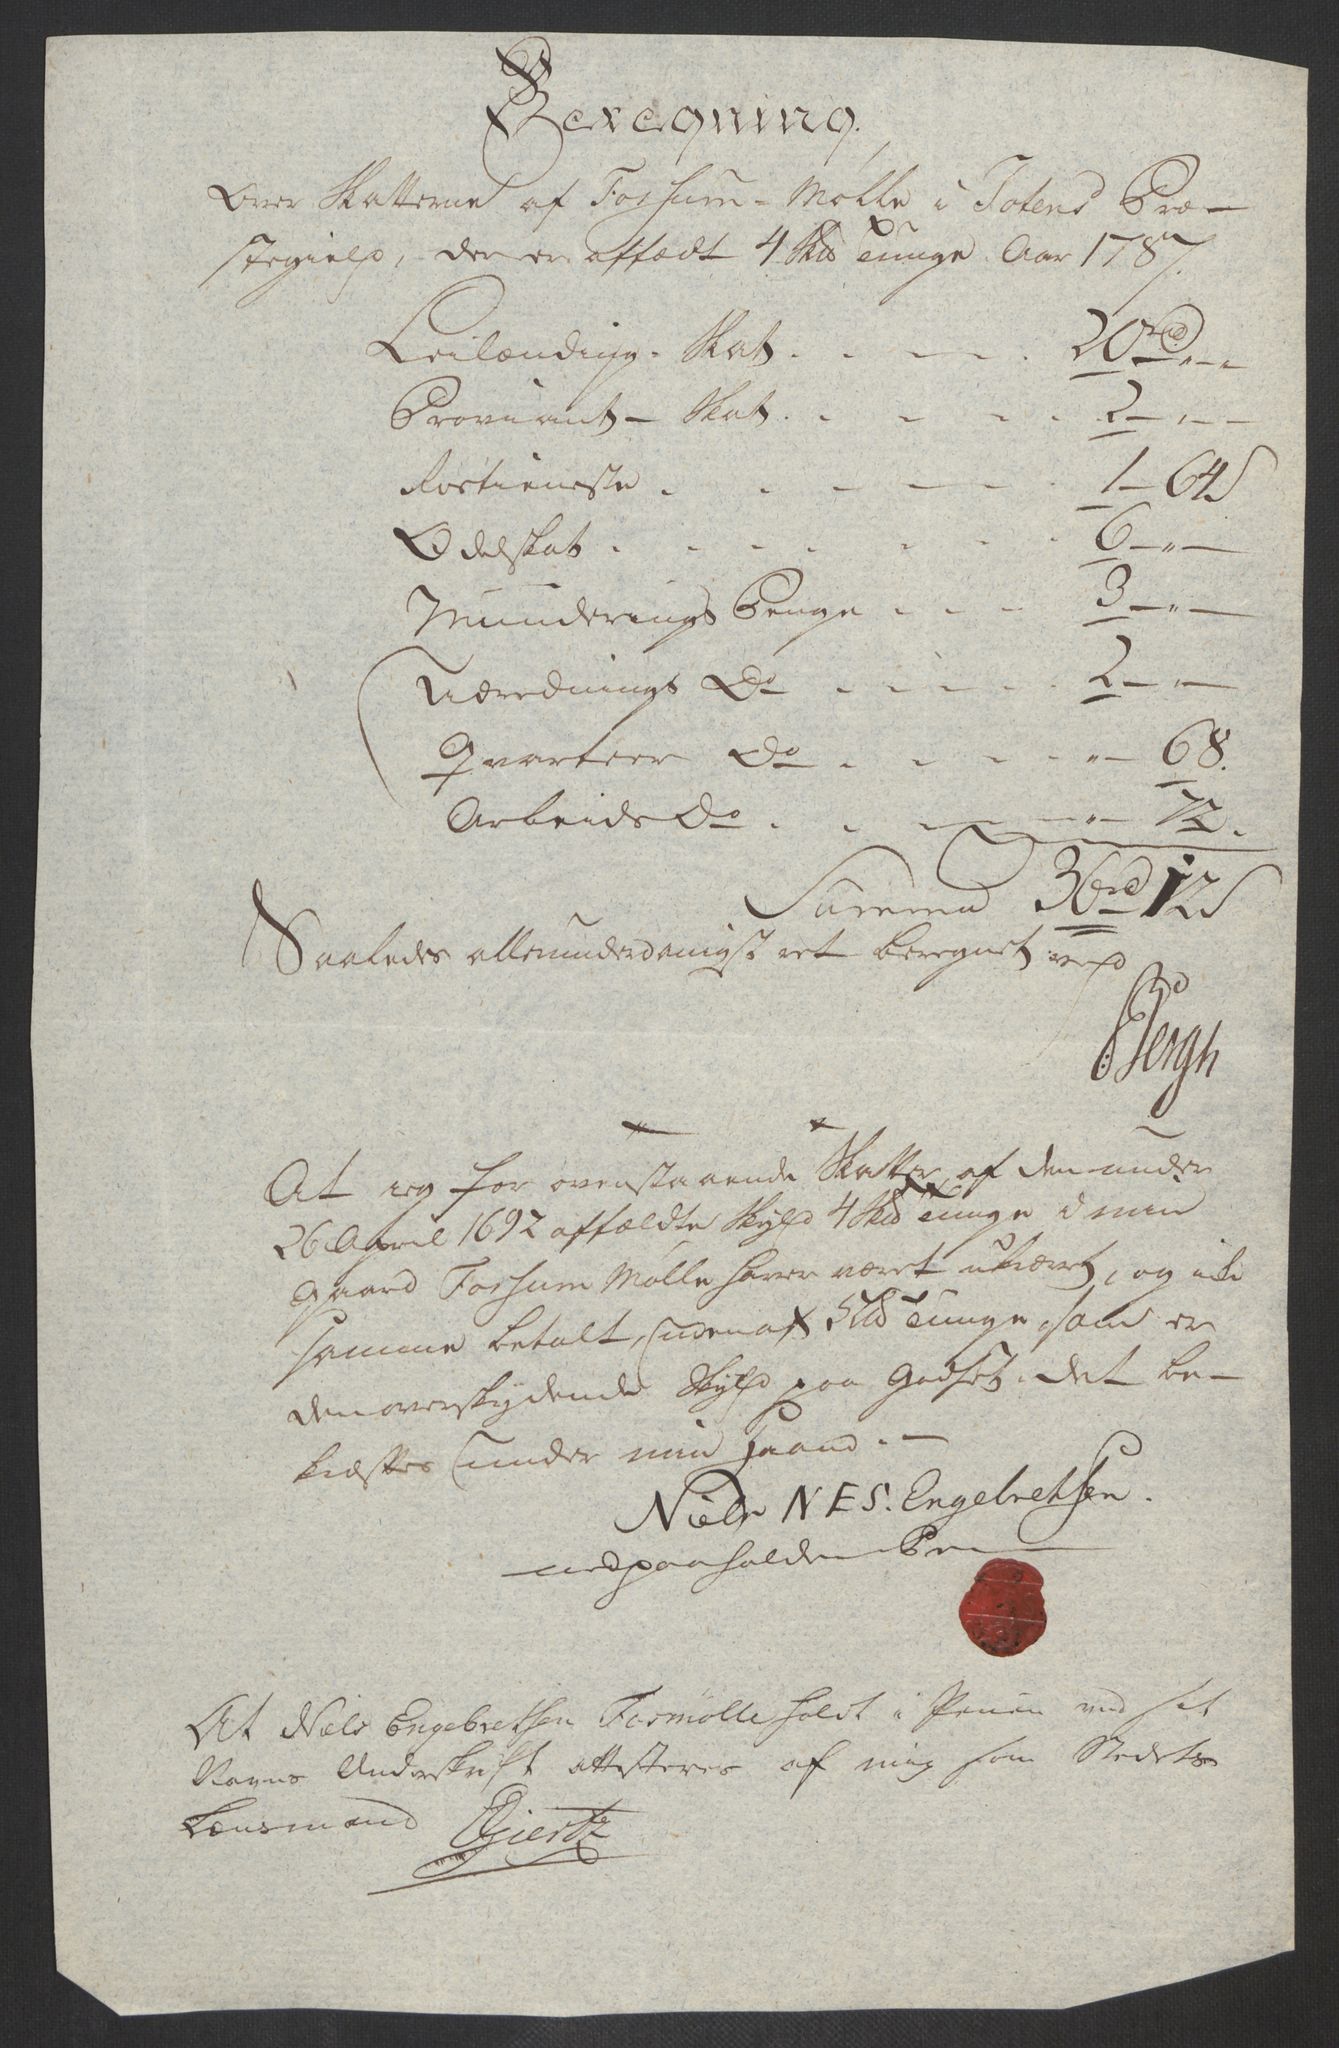 Beregning
Over Skatterne af Fossum-Mølle i Totens Præ-
stegield, der er affældt 4 Skd Tunge Aar 1787.
Leilændings-Skat . . . 20 rd „ -
Proviant-Skat . . . 2 - „ -
Rostieneste . . . 1 - 64 s
Odelskat . . . 6 - „ -
Munderings Penge . . . 3 - „ -
Udrednings Do . . . 2 - „ -
Qvarteer Do . . . „ - 68.
Arbeids Do . . . „ - 72.
Summa 36 rd 12 s
Saaledes allerunderdanigst ret beregnet ved
Bergh
At ieg for ovenstaaende Skatter af den under
26 April 1692 affældte Skyld 4 Skd Tunge i min
Gaard Fossum Mølle haver været ukrævet, og ikke
samme betalt, undtagen af Tunge, som er
den overskydende Skyld paa Godset. Det be-
kræftes under min Haand. -
Niels N E S. Engebretsen.
med paaholden Pen
At Niels Engebretsen Fosmølle holdt i Pennen ved sit
Navns Underskrift attesteres af mig som Stedets
Lænsmand Giertz